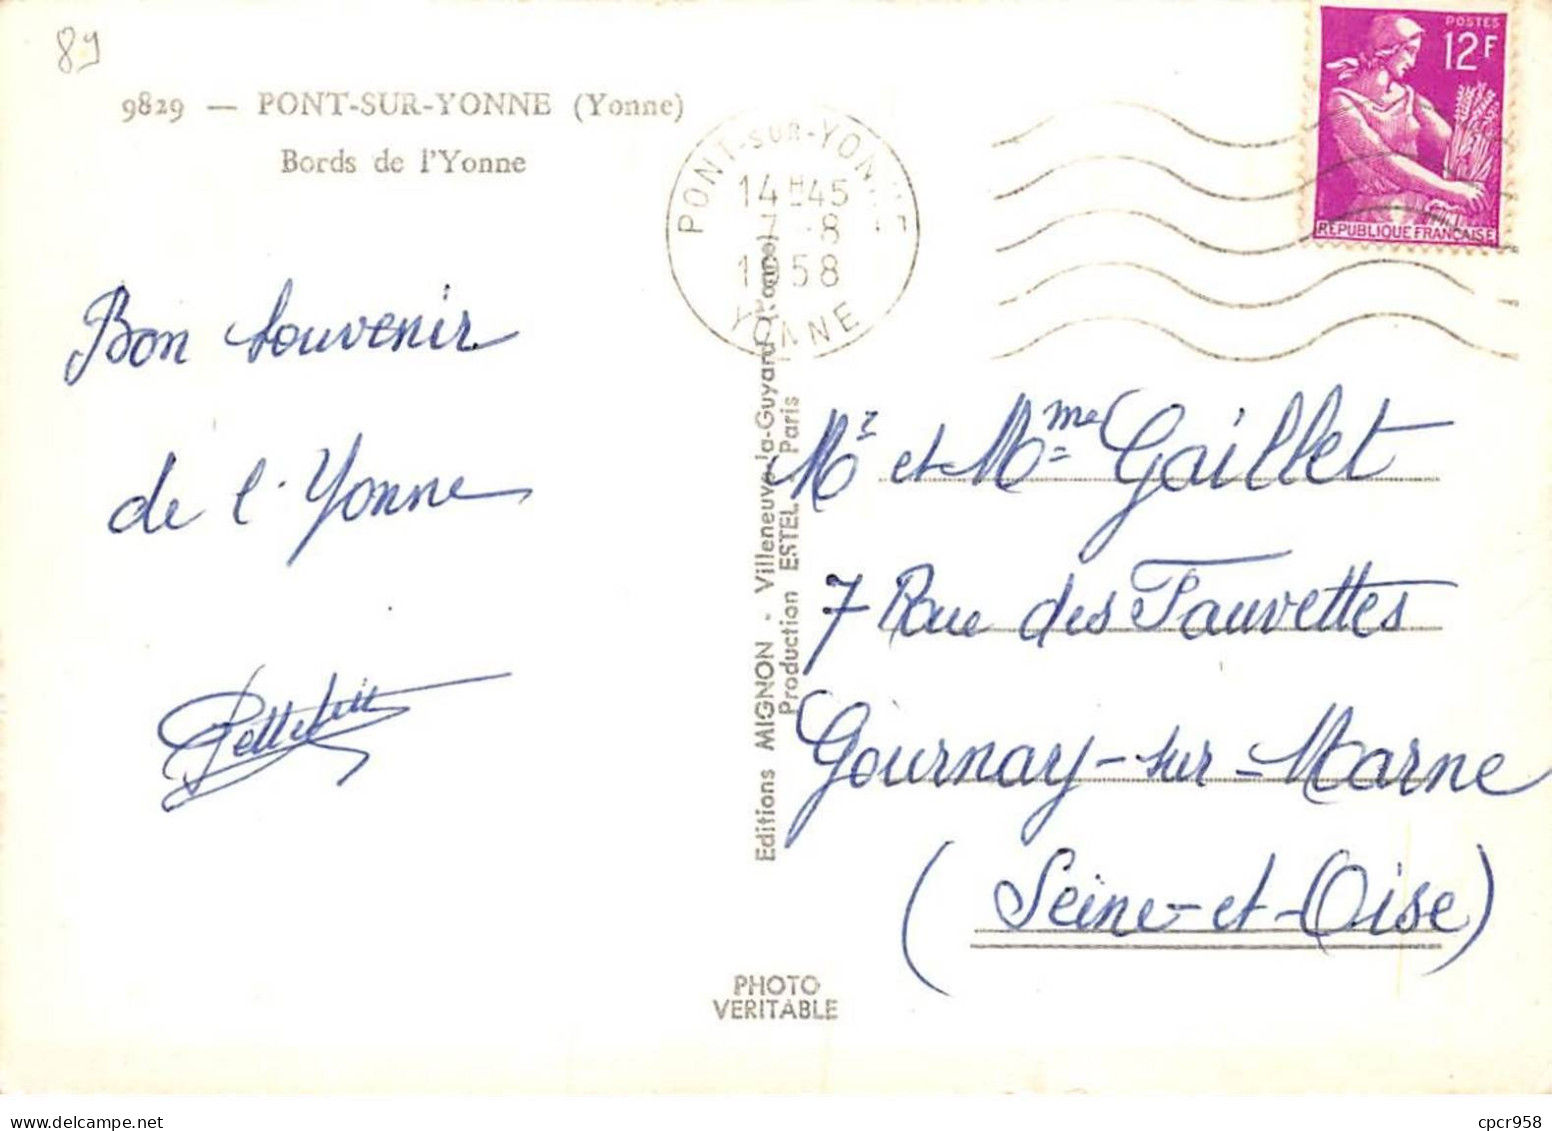 89
9829 — PONT-SUR-YONNE (Yonne)
Bords de l'Yonne
POSTES
12F
REPUBLIQUE FRANÇAISE
PONT-SUR-YONNE
14H45
7-8
1958
YONNE
Bon souvenir
de l'Yonne
Editions MIGNON - Villeneuve-la-Guyard (Yonne)
Production ESTEL - Paris
Mr et Mme Gaillet
7 Rue des Fauvettes
Gournay-sur-Marne
(Seine-et-Oise)
PHOTO
VERITABLE
cpcr958